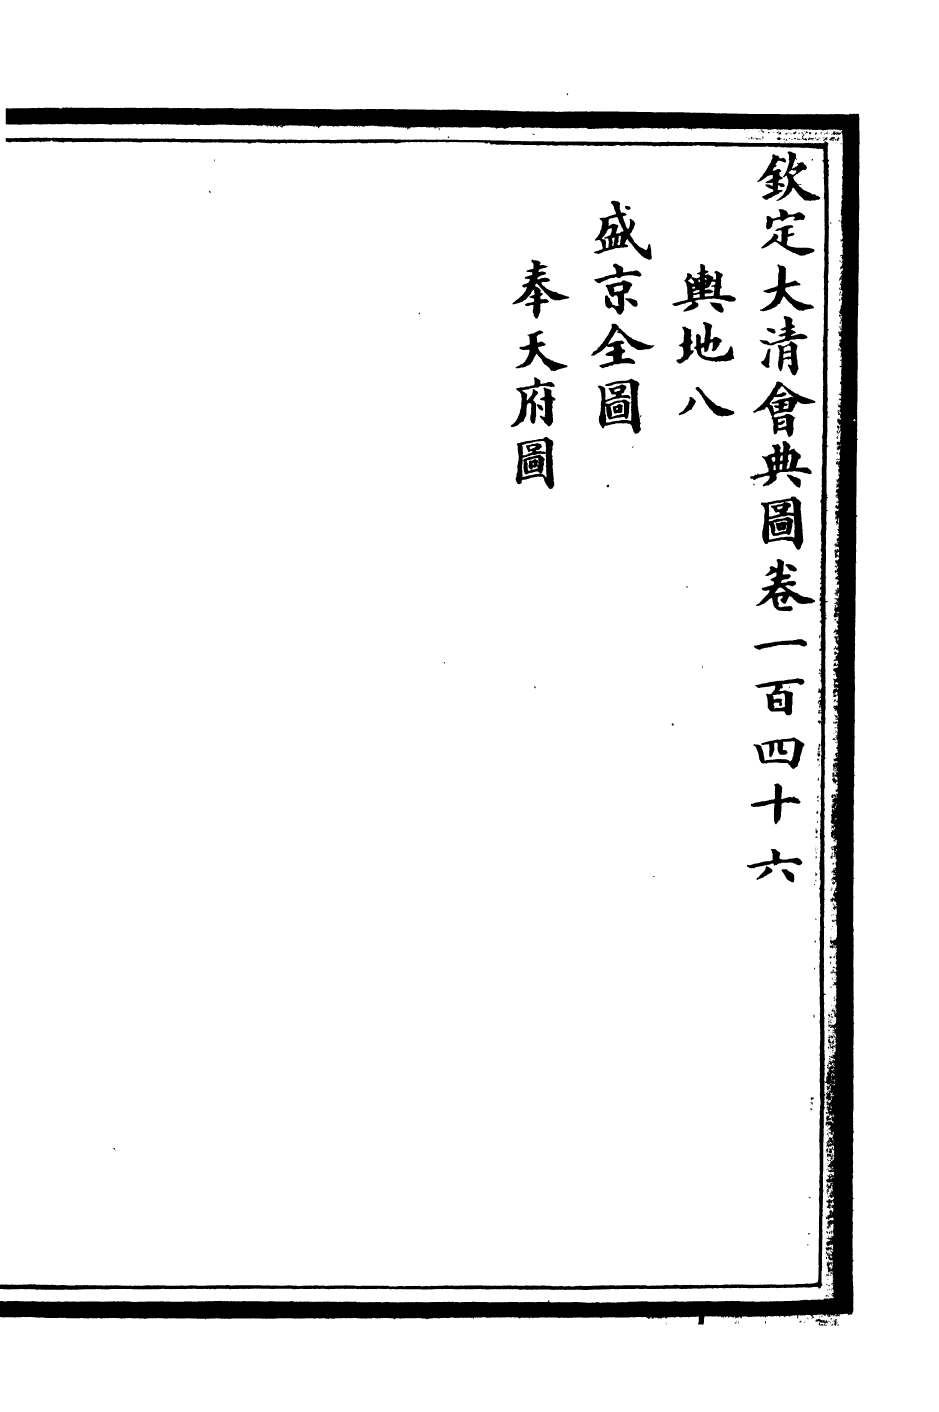 欽定大清會典圖卷一百四十六
輿地八
盛京全圖
奉天府圖